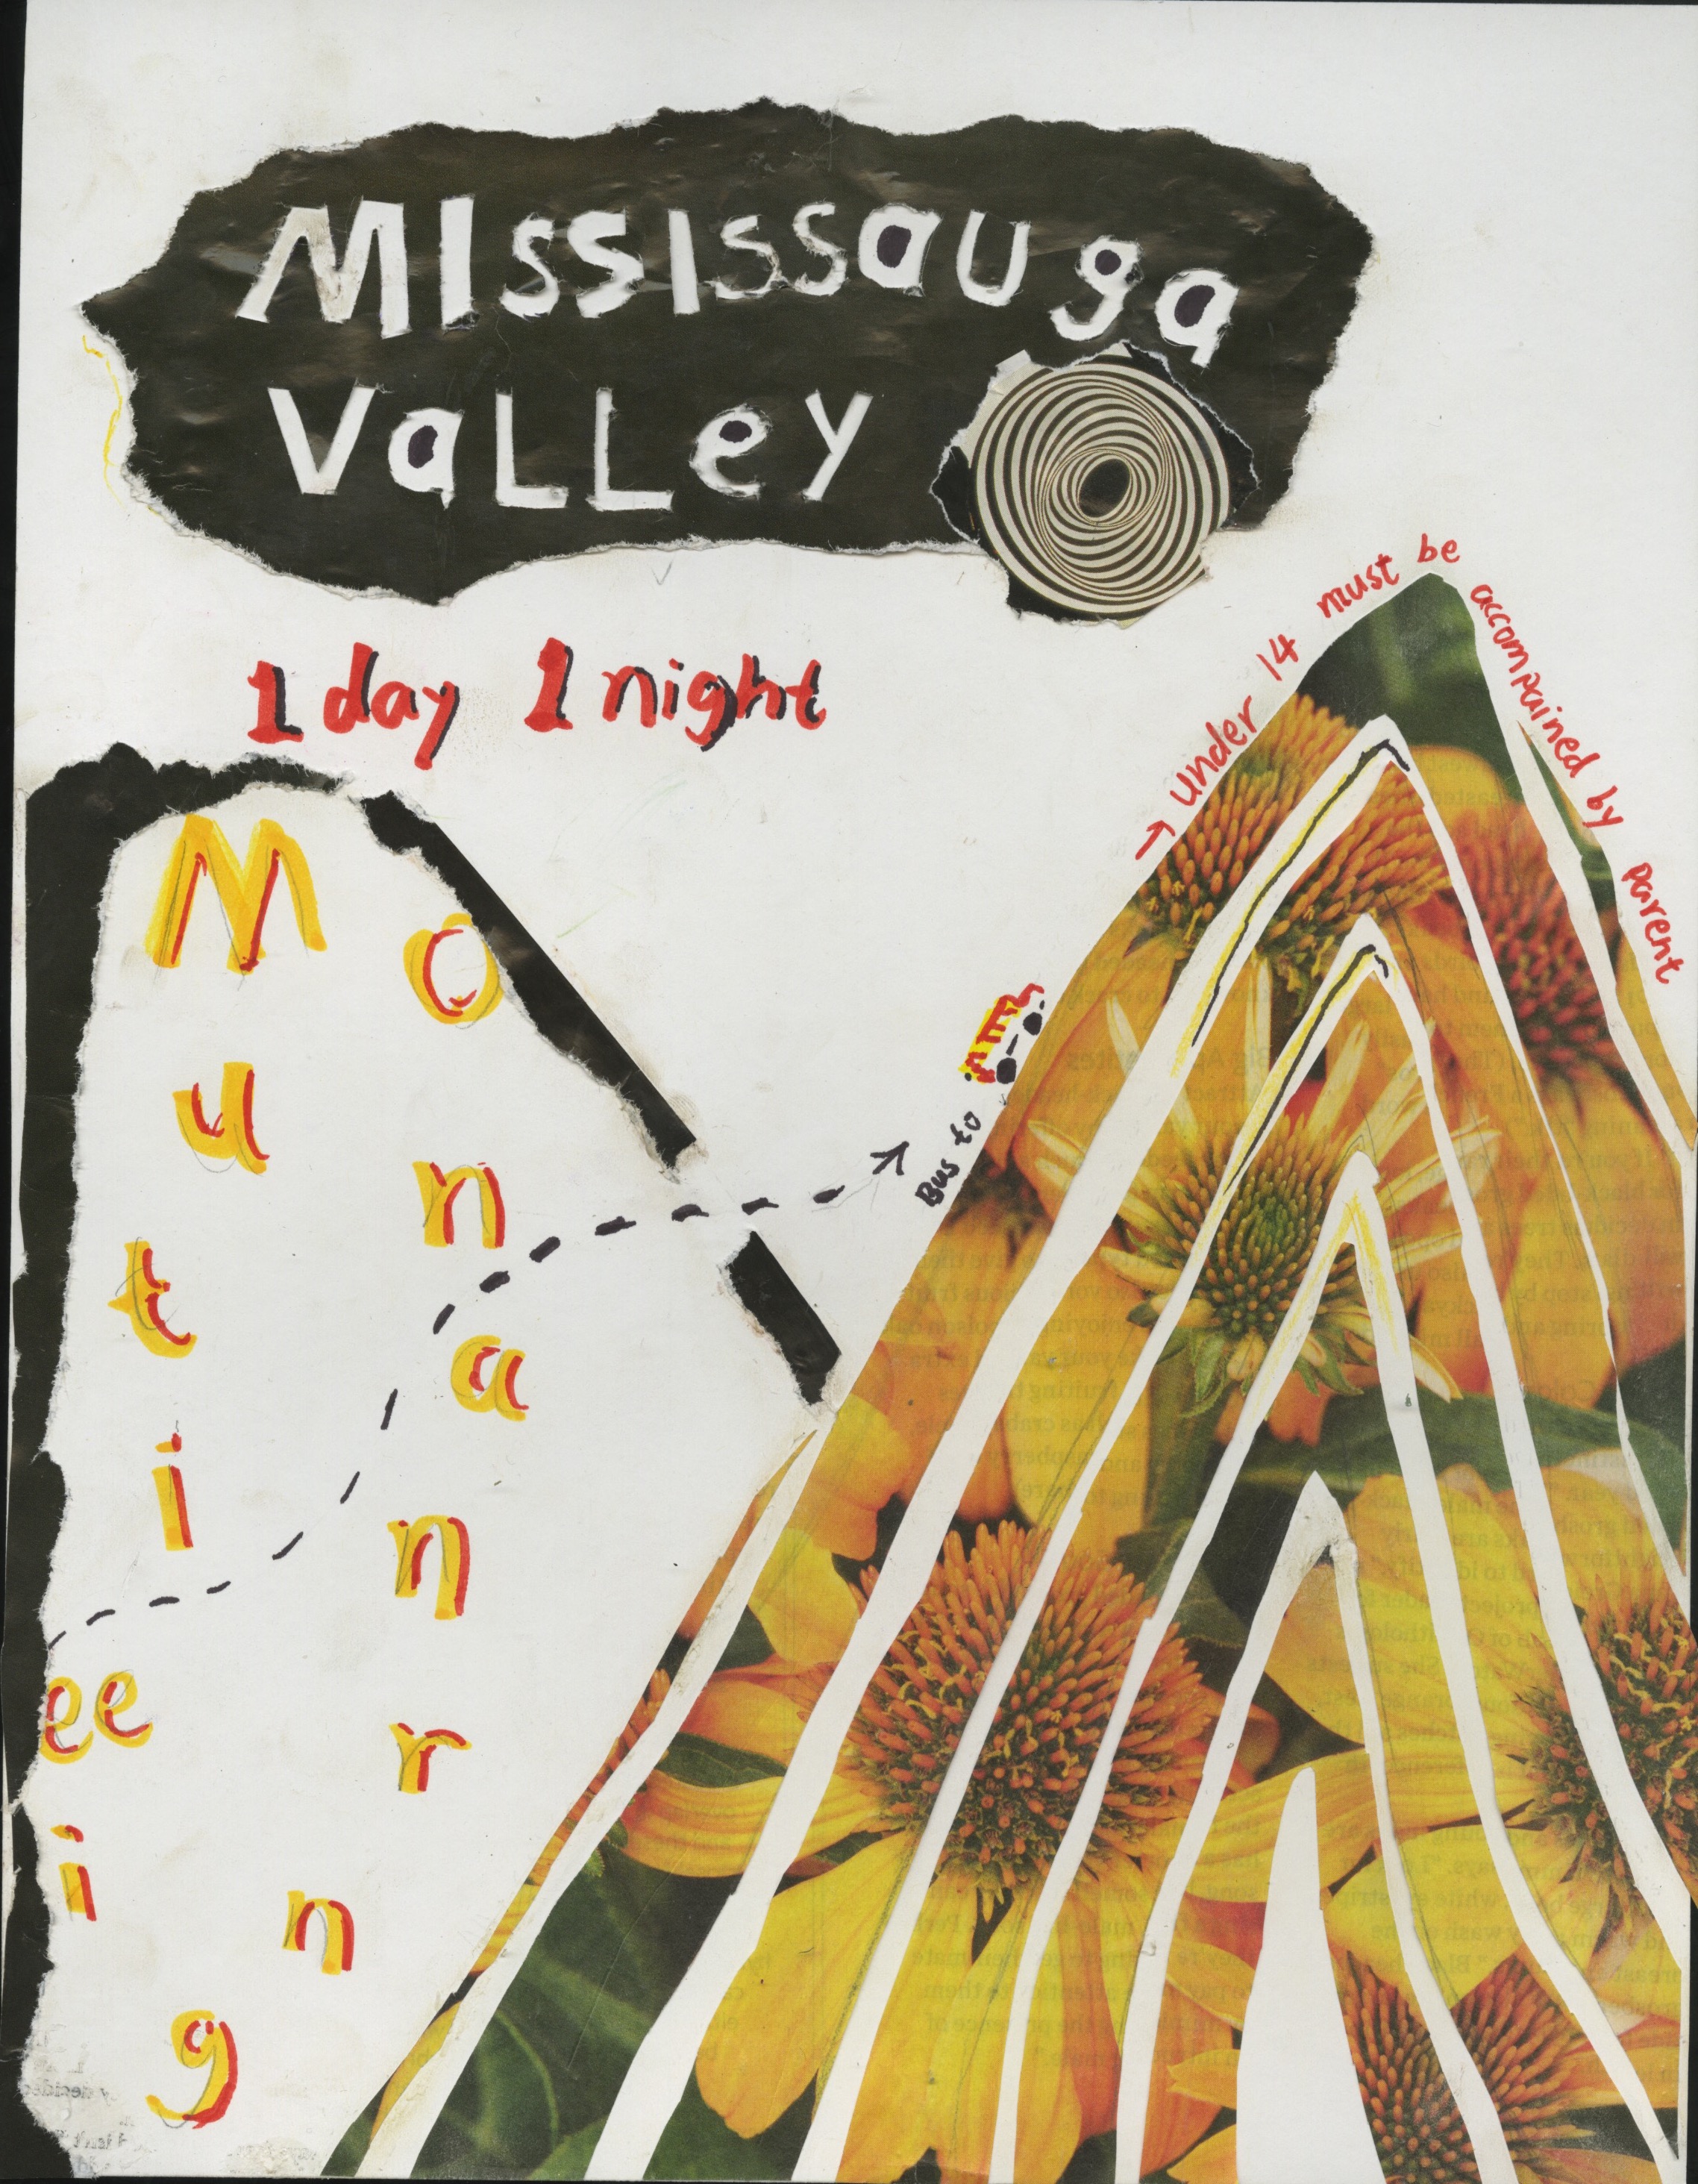 Mississauga
Valley
1 day 1 night
Mountaineering
Bus to
under 14 must be accompained by parent